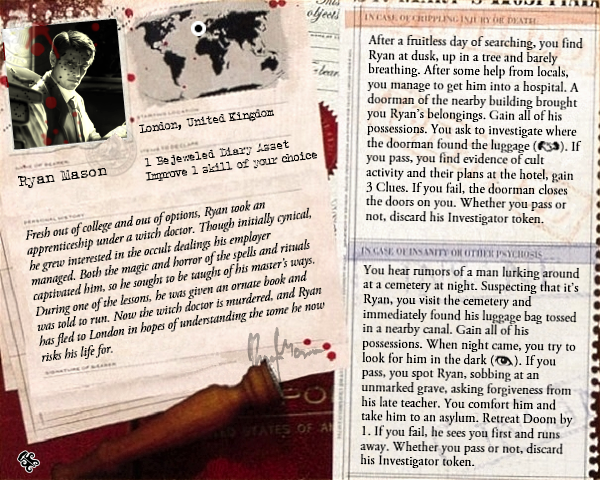 London, United Kingdom
1 Bejeweled Diary Asset
Improve 1 skill of your choice
Ryan Mason
PERSONAL HISTORY
Fresh out of college and out of options, Ryan took an
apprenticeship under a witch doctor. Though initially cynical,
he grew interested in the occult dealings his employer
managed. Both the magic and horror of the spells and rituals
captivated him, so he sought to be taught of his master's ways.
During one of the lessons, he was given an ornate book and
was told to run. Now the witch doctor is murdered, and Ryan
has fled to London in hopes of understanding the tome he now
risks his life for.
SIGNATURE OF BEARER
IN CASE OF CRIPPLING INJURY OR DEATH
After a fruitless day of searching, you find
Ryan at dusk, up in a tree and barely
breathing. After some help from locals,
you manage to get him into a hospital. A
doorman of the nearby building brought
you Ryan's belongings. Gain all of his
possessions. You ask to investigate where
the doorman found the luggage ( ). If
you pass, you find evidence of cult
activity and their plans at the hotel, gain
3 Clues. If you fail, the doorman closes
the doors on you. Whether you pass or
not, discard his Investigator token.
IN CASE OF INSANITY OR OTHER PSYCHOSIS
You hear rumors of a man lurking around
at a cemetery at night. Suspecting that it's
Ryan, you visit the cemetery and
immediately found his luggage bag tossed
in a nearby canal. Gain all of his
possessions. When night came, you try to
look for him in the dark ( ). If you
pass, you spot Ryan, sobbing at an
unmarked grave, asking forgiveness from
his late teacher. You comfort him and
take him to an asylum. Retreat Doom by
1. If you fail, he sees you first and runs
away. Whether you pass or not, discard
his Investigator token.